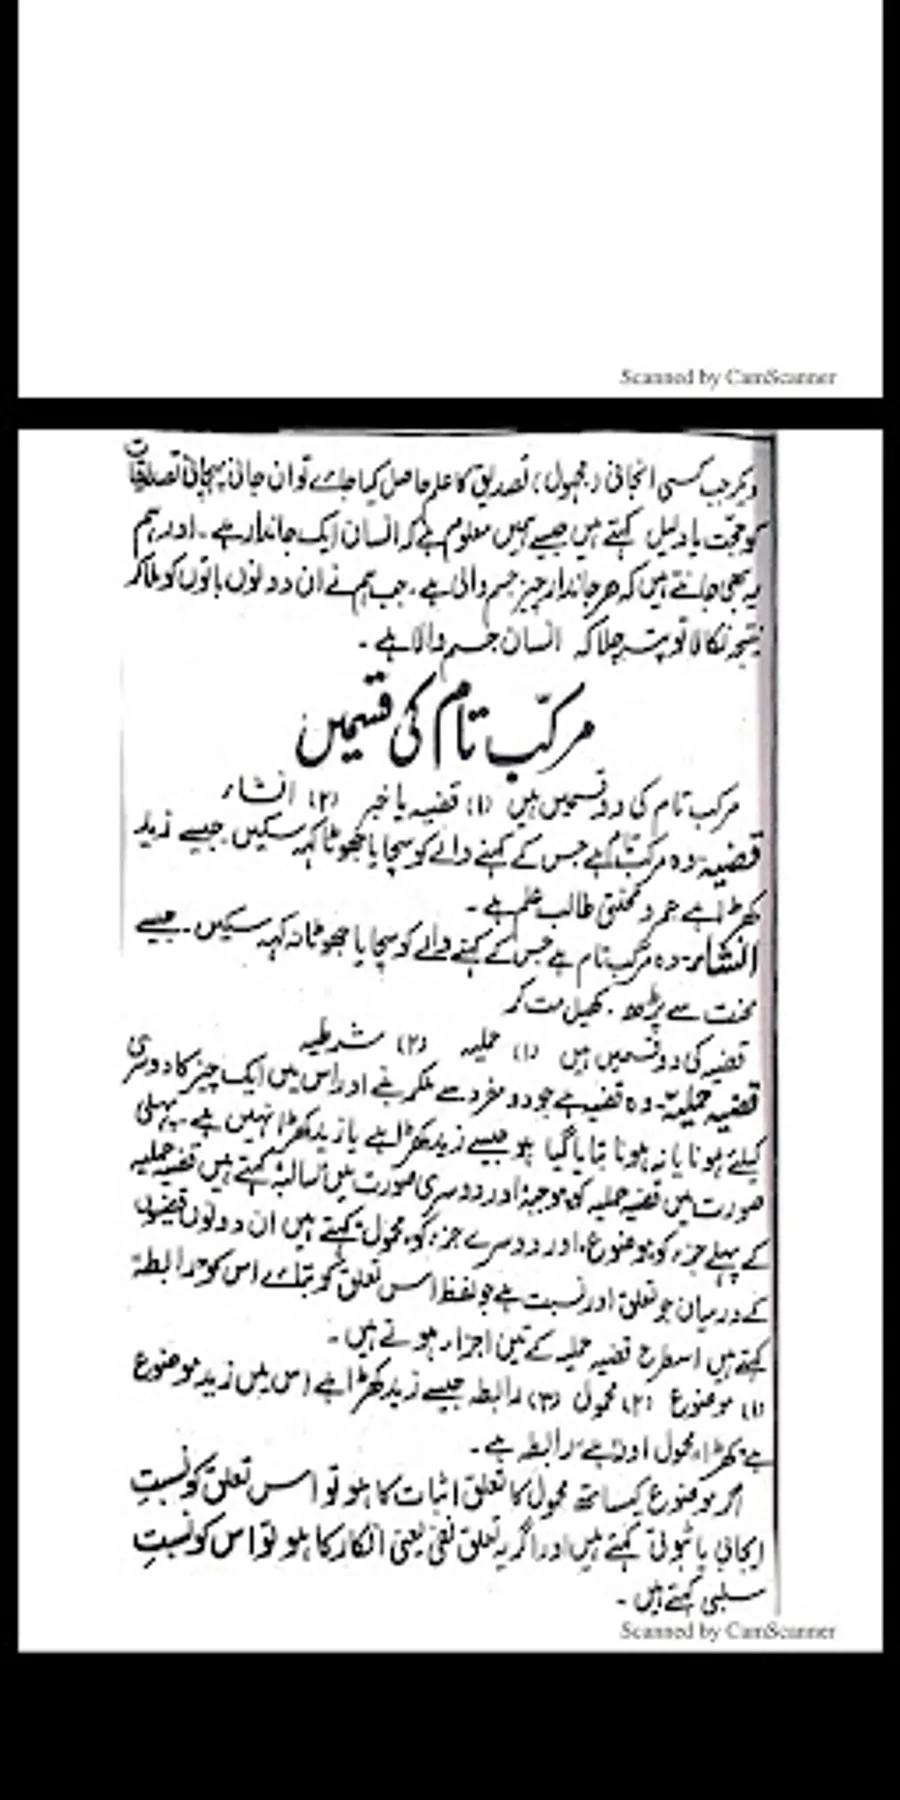 Scanned by CamScanner
دیگر جب کسی انجانی (مجہول) تصدیق کا علم حاصل کیا جائے تو ان جانی پہچانی تصدیقات
کو حجت یا دلیل کہتے ہیں جیسے ہمیں معلوم ہے کہ انسان ایک جاندار ہے ۔ اور ہم
یہ بھی جانتے ہیں کہ ہر جاندار چیز جسم والی ہے ۔ جب ہم نے ان دونوں باتوں کو ملا کر
نتیجہ نکالا تو پتہ چلا کہ انسان جسم والا ہے ۔
مرکّب تام کی قسمیں
مرکب تام کی دو قسمیں ہیں (۱) قضیہ یا خبر (۲) انشاء
قضیہ:- وہ مرکب تام ہے جس کے کہنے والے کو سچا یا جھوٹا کہہ سکیں جیسے زید
کھڑا ہے عمرو محنتی طالب علم ہے ۔
انشاء:- وہ مرکب تام ہے جس کے کہنے والے کو سچا یا جھوٹا نہ کہہ سکیں ۔ جیسے
محنت سے پڑھو ۔ کھیل مت کر
قضیہ کی دو قسمیں ہیں (۱) حملیہ (۲) شرطیہ
قضیہ حملیہ:- وہ قضیہ ہے جو دو مفرد سے ملکر بنے اور اس میں ایک چیز کا دوسری
کیلئے ہونا یا نہ ہونا بتایا گیا ہو جیسے زید کھڑا ہے یا زید کھڑا نہیں ہے ۔ پہلی
صورت میں قضیہ حملیہ کو موجبہ اور دوسری صورت میں سالبہ کہتے ہیں قضیہ حملیہ
کے پہلے جزء کو موضوع، اور دوسرے جزء کو محمول کہتے ہیں ان دونوں قضیوں
کے درمیان جو تعلق اور نسبت ہے جو لفظ اس تعلق کو بتائے اس کو رابطہ
کہتے ہیں اسطرح قضیہ حملیہ کے تین اجزاء ہوتے ہیں ۔
(۱) موضوع (۲) محمول (۳) رابطہ جیسے زید کھڑا ہے اس میں زید موضوع
ہے کھڑا محمول اور ہے رابطہ ہے ۔
اگر موضوع کیساتھ محمول کا تعلق اثبات کا ہو تو اس تعلق کو نسبتِ
ایجابی یا ثبوتی کہتے ہیں اور اگر یہ تعلق نفی یعنی انکار کا ہو تو اس کو نسبتِ
سلبی کہتے ہیں ۔
Scanned by CamScanner